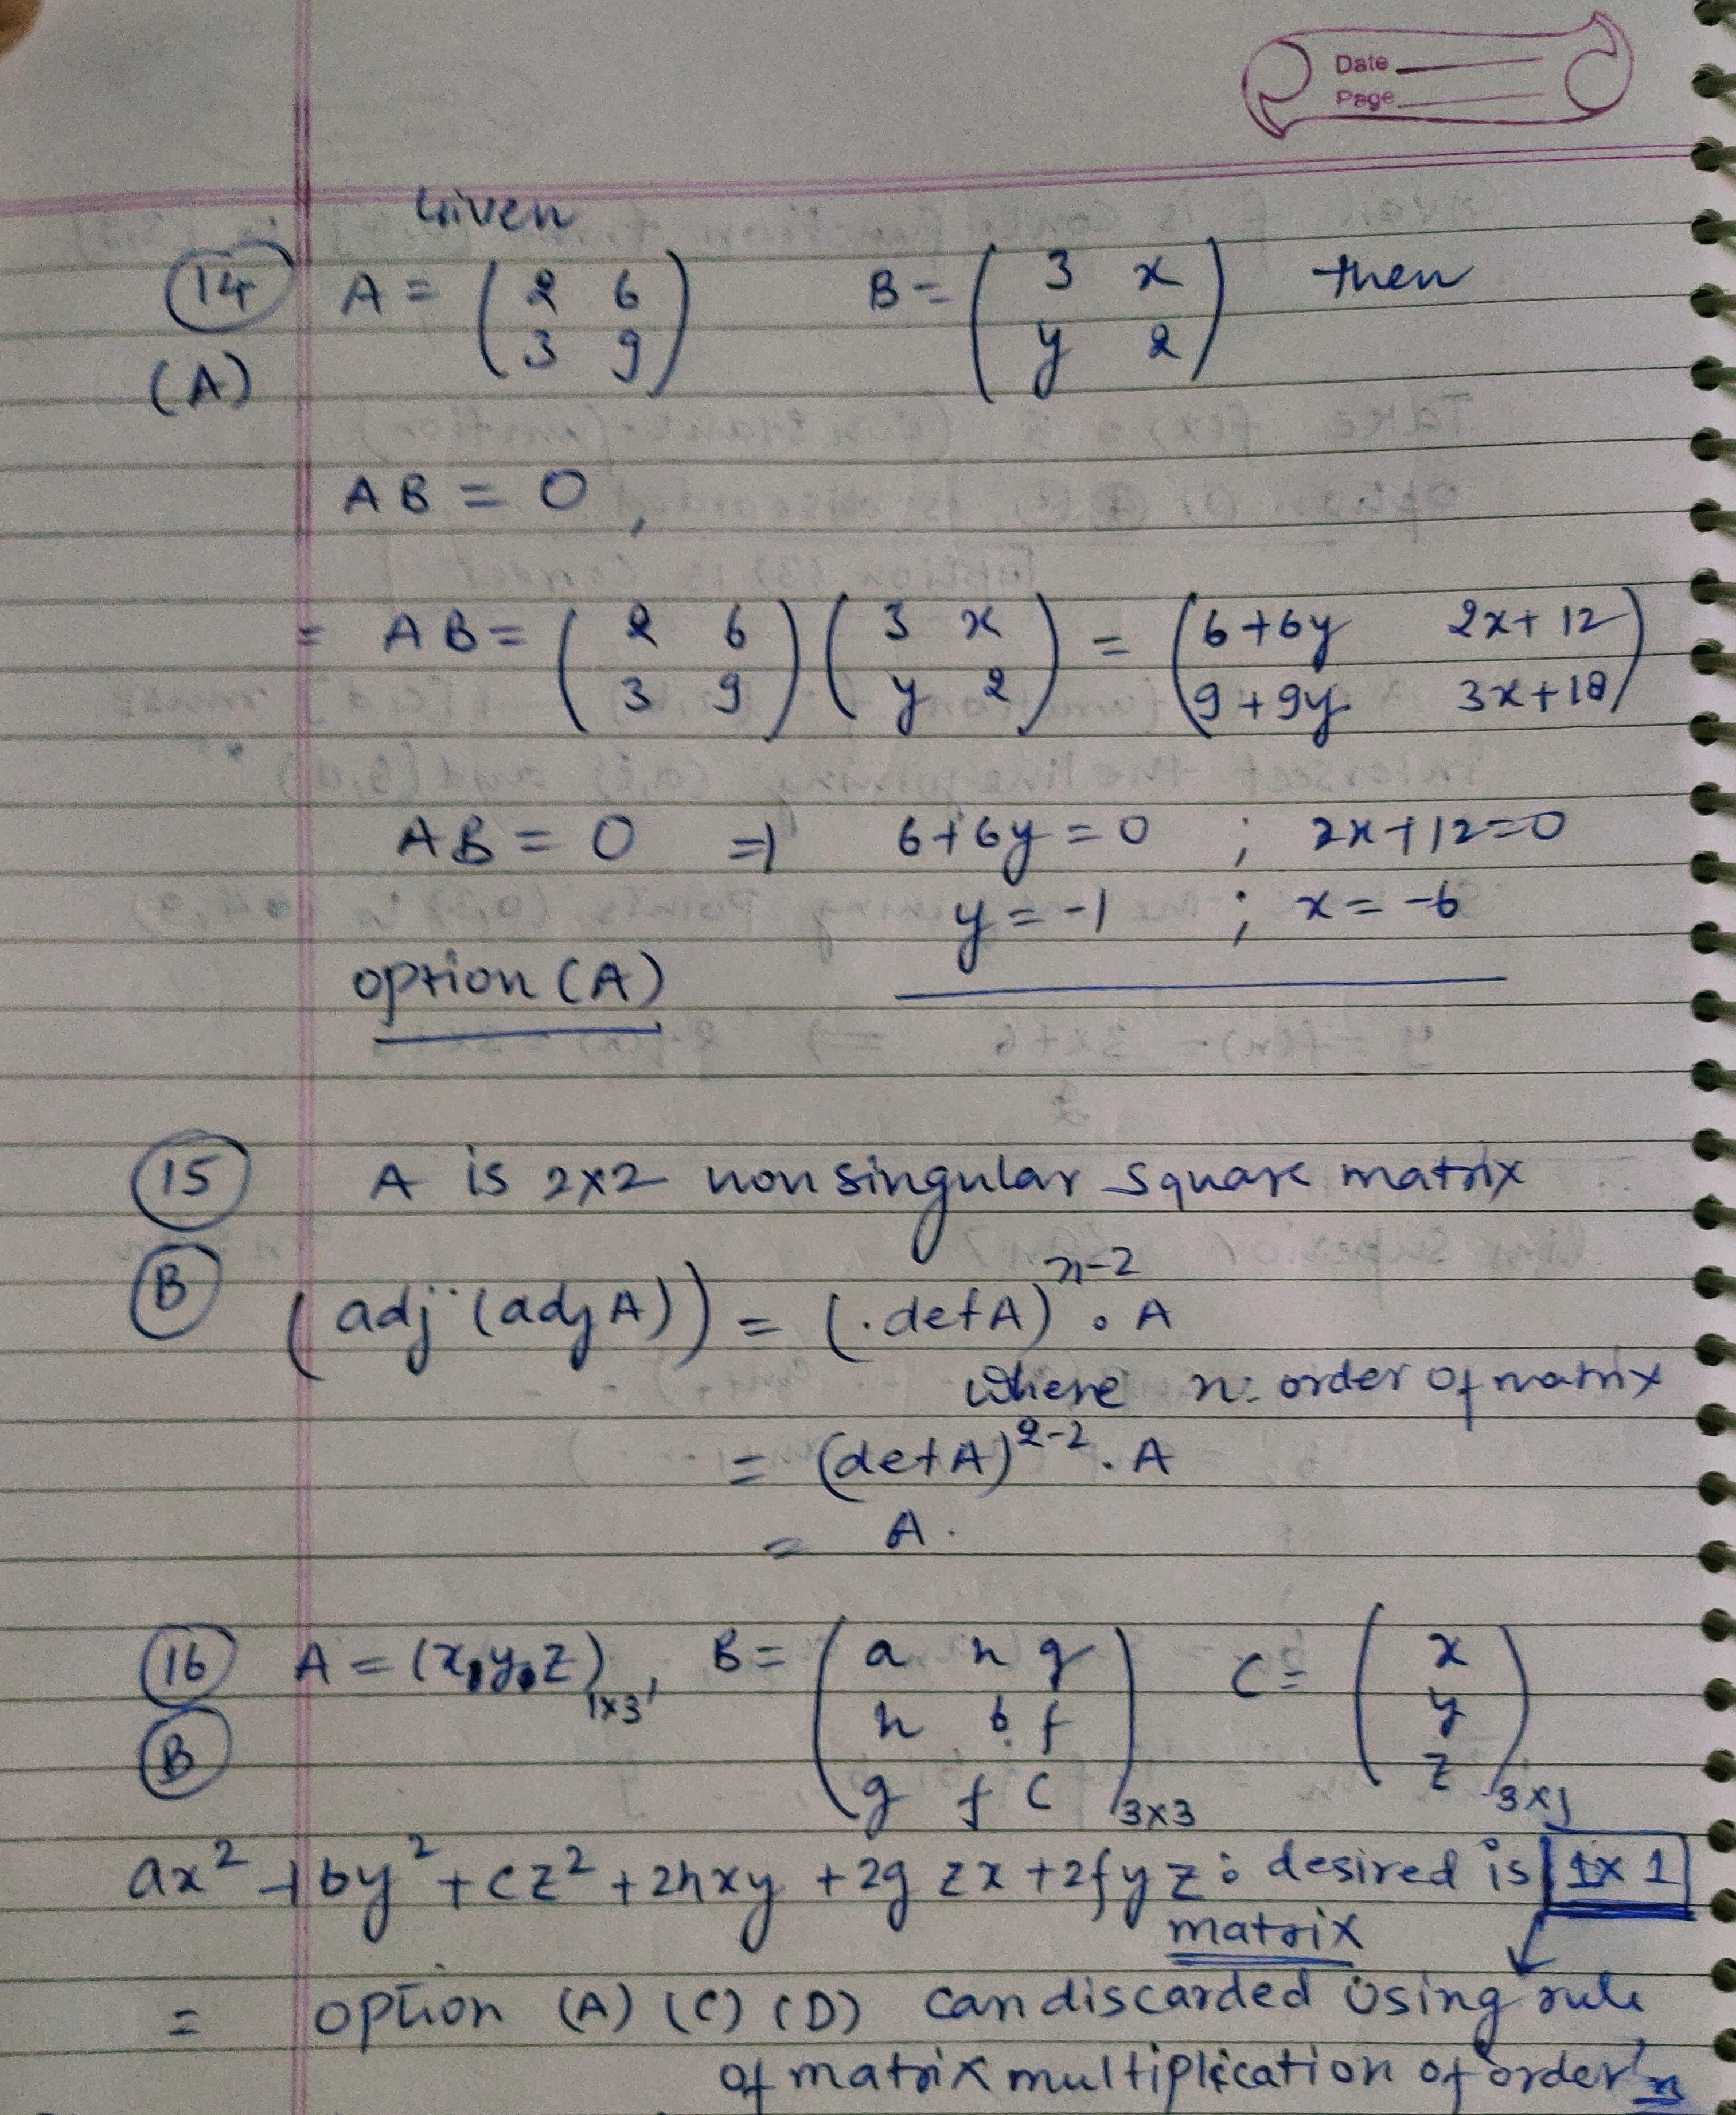 Date
Page
Given
(14) A = ( 2 6 ; 3 9 ) B = ( 3 x ; y 2 ) then
(A)
AB = 0,
= AB = ( 2 6 ; 3 9 ) ( 3 x ; y 2 ) = ( 6+6y 2x+12 ; 9+9y 3x+18 )
AB = 0 ⇒ 6+6y = 0 ; 2x+12=0
y = -1 ; x = -6
option (A)
(15) A is 2x2 non singular square matrix
(B) (adj (adj A)) = (det A)^{n-2} . A
where n: order of matrix
= (det A)^{2-2} . A
= A.
(16) A = (x, y, z)_{1x3}, B = ( a h g ; h b f ; g f c )_{3x3} C = ( x ; y ; z )_{3x1}
(B)
ax² + by² + cz² + 2hxy + 2g zx + 2fyz : desired is 1x1
matrix
= option (A) (C) (D) can discarded using rule
of matrix multiplication of order